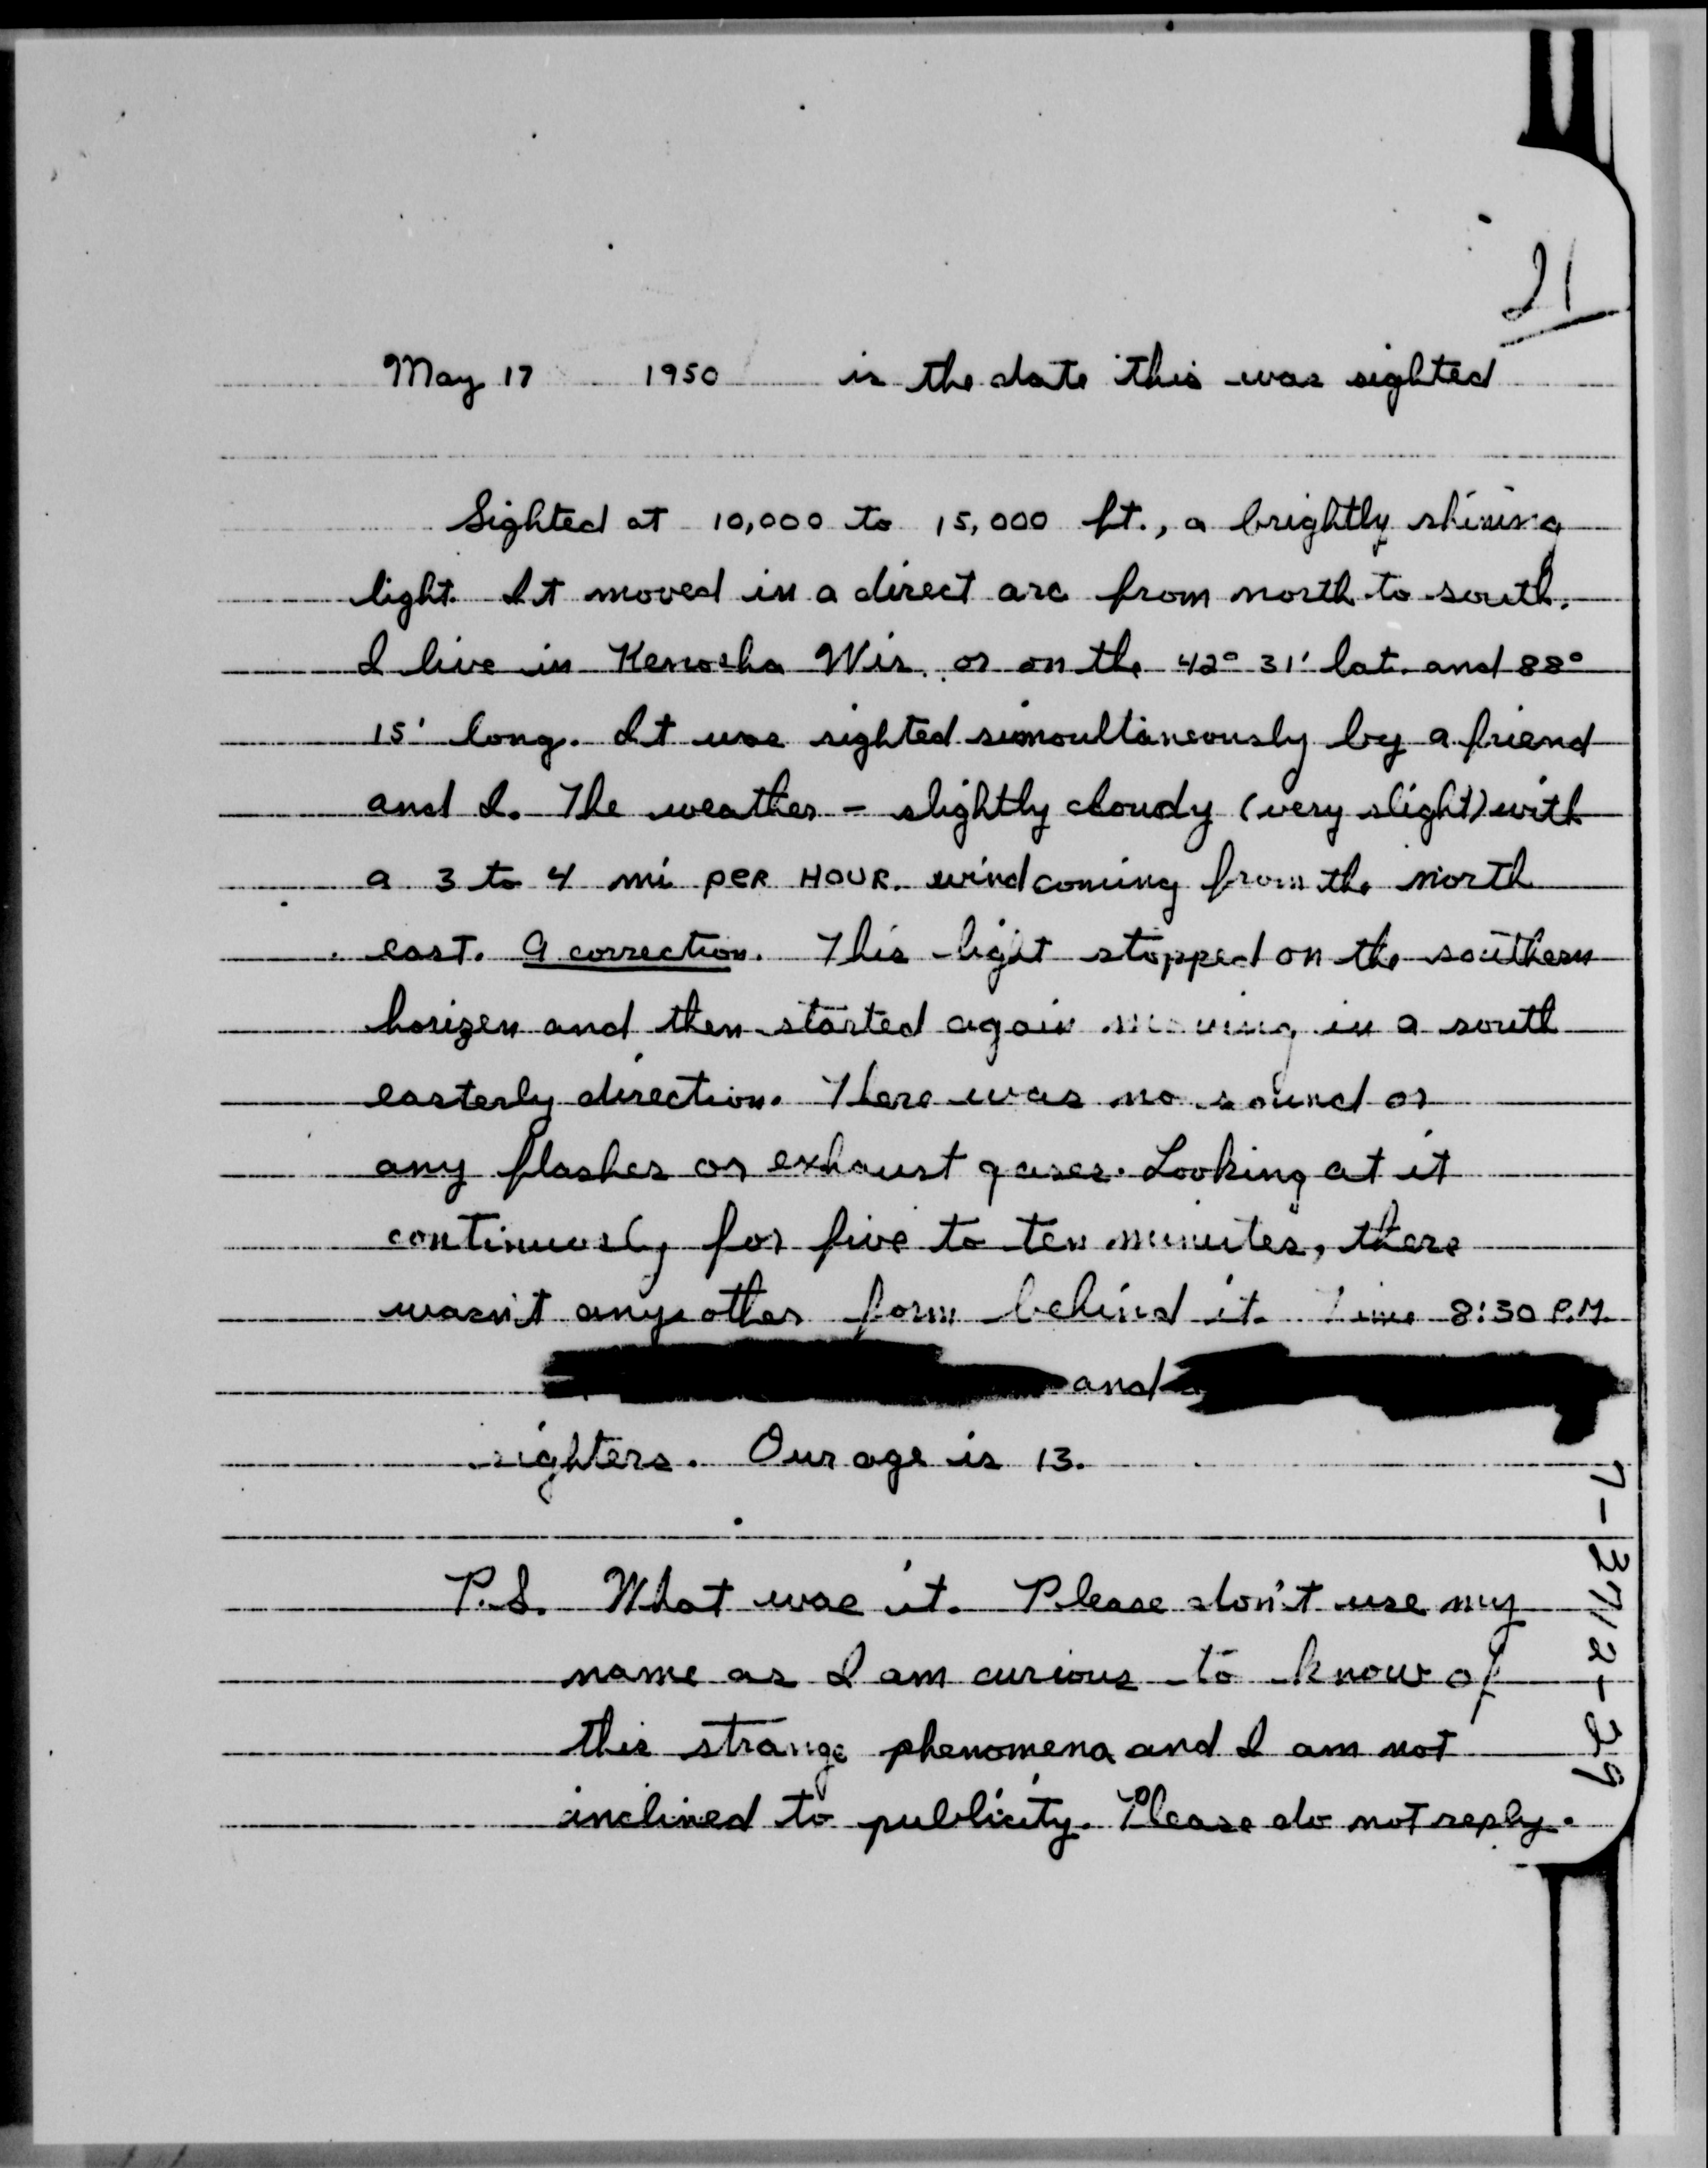 21
May 17 1950 is the date this was sighted
Sighted at 10,000 to 15,000 ft., a brightly shining
light. It moved in a direct arc from north to south.
I live in Kenosha Wis. or on the 42° 31' lat. and 88°
15' long. It was sighted simoultaneously by a friend
and I. The weather - slightly cloudy (very slight) with
a 3 to 4 mi PER HOUR. wind coming from the north
east. A correction. This light stopped on the southern
horizen and then started again moving in a south
easterly direction. There was no sound or
any flashes or exhaust gases. Looking at it
continuously for five to ten minutes, there
wasn't any other form behind it. Time 8:30 P.M.
and
sighters. Our age is 13.
P.S. What was it. Please don't use my
name as I am curious to know of
this strange phenomena and I am not
inclined to publicity. Please do not reply.
7-3712-29